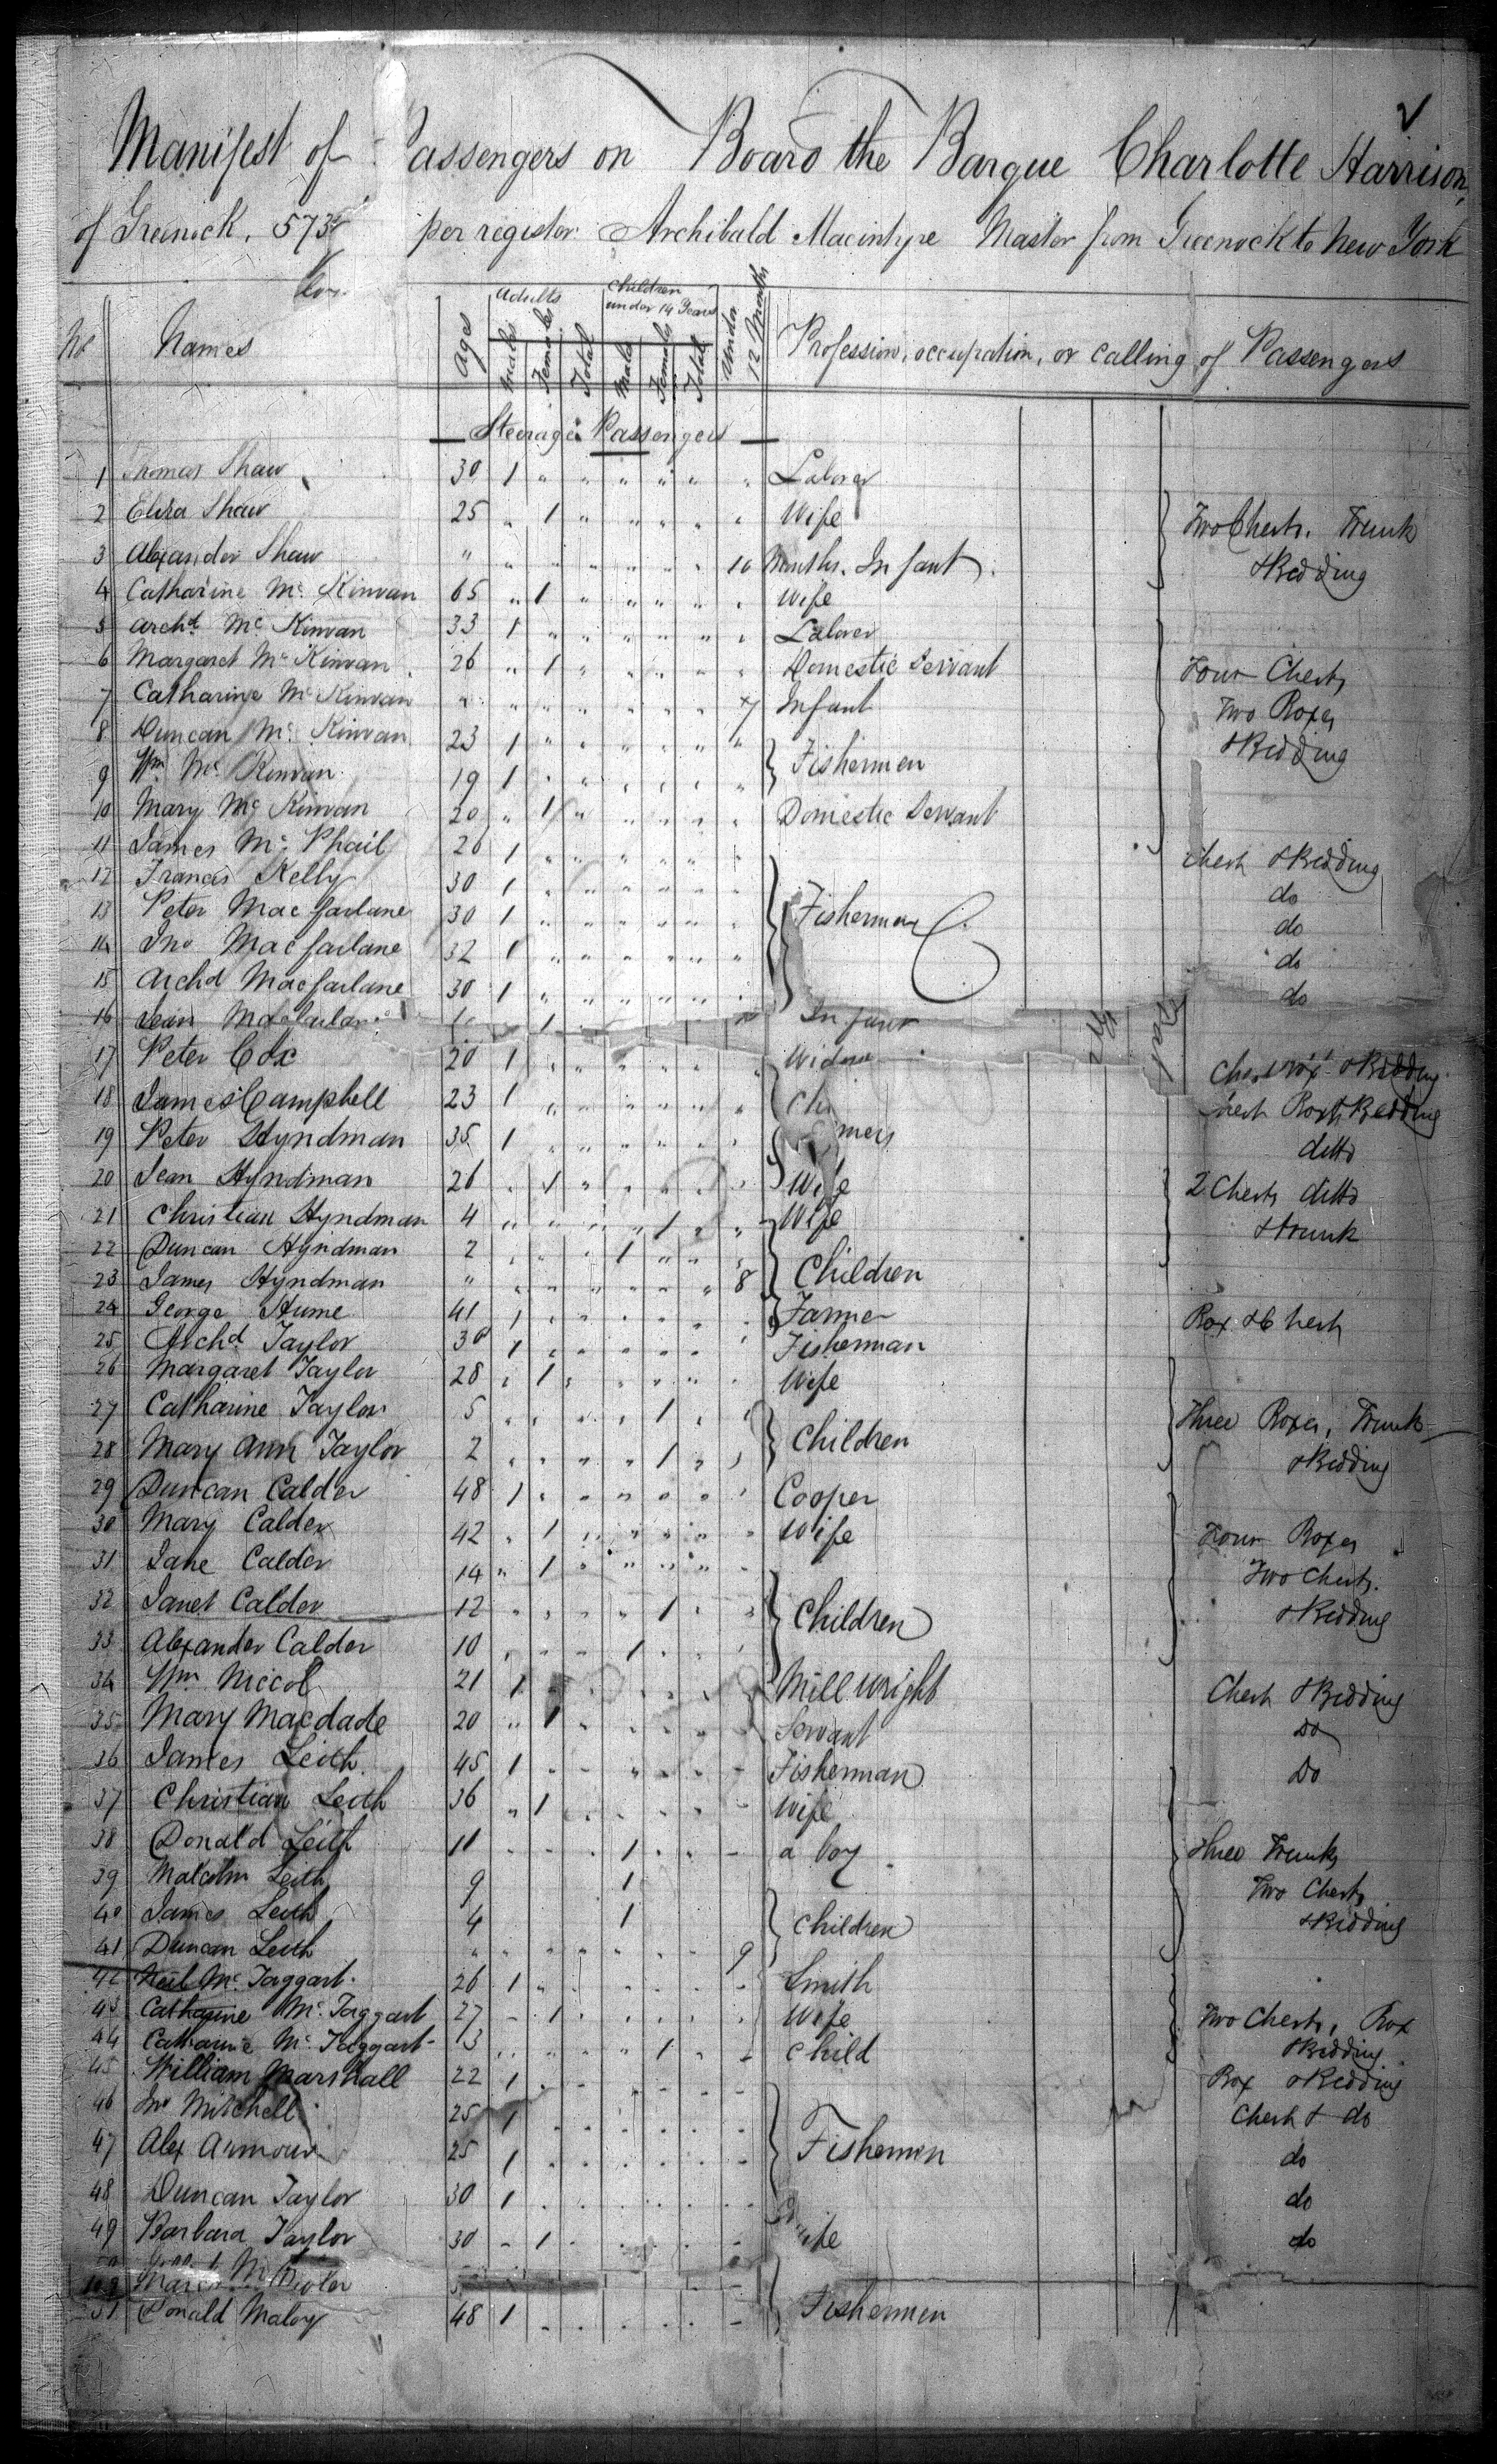 Manifest of Passengers on Board the Barque Charlotte Harrison,
of Greenock, 573 per register Archibald Macintyre Master from Greenock to New York
No Names Ages Adults Males Females Total Children under 14 Years Male Female Total Under 12 Months Profession, occupation, or calling of Passengers
Steerage Passengers
1 Thomas Shaw 30 1 " " " " " " Laborer
2 Eliza Shaw 25 " 1 " " " " " Wife Two Chests. Trunk
3 Alexander Shaw " " " " " " " 10 Months. Infant. & Bedding
4 Catharine Mc Kinvan 65 " 1 " " " " " Wife
5 Archd Mc Kinvan 33 1 " " " " " " Laborer
6 Margaret Mc Kinvan 26 " 1 " " " " " Domestic Servant Four Chests
7 Catharine Mc Kinvan " " " " " " " 7 Infant Two Boxes
8 Duncan Mc Kinvan 23 1 " " " " " " Fishermen & Bedding
9 Wm Mc Kinvan 19 1 " " " " " "
10 Mary Mc Kinvan 20 " 1 " " " " " Domestic Servant
11 James Mc Phail 26 1 " " " " " " Chest & Bedding
12 Francis Kelly 30 1 " " " " " " do
13 Peter Macfarlane 30 1 " " " " " " Fishermen do
14 Jno Macfarlane 32 1 " " " " " " do
15 Archd Macfarlane 30 1 " " " " " " do
16 Jean 1 Infant
17 Peter Cox 20 1 " " " " " " Widow & Bedding
18 James Campbell 23 1 " " " " " " Chest Box & Bedding
19 Peter Hyndman 35 1 " " " " " " ditto
20 Jean Hyndman 26 " 1 " " " " " Wife 2 Chests ditto
21 Christian Hyndman 4 " " " " 1 " " Wife & trunk
22 Duncan Hyndman 2 " " " 1 " " " Children
23 James Hyndman " " " " " " " 8
24 George Hume 41 1 " " " " " " Farmer Box & Chest
25 Archd Taylor 30 1 " " " " " " Fisherman
26 Margaret Taylor 28 " 1 " " " " " Wife
27 Catharine Taylor 5 " " " " 1 " " Children Three Boxes, Trunk
28 Mary Ann Taylor 2 " " " " 1 " " & Bedding
29 Duncan Calder 48 1 " " " " " " Cooper
30 Mary Calder 42 " 1 " " " " " Wife Four Boxes
31 Jane Calder 14 " 1 " " " " " Two Chests.
32 Janet Calder 12 " " " " 1 " " Children & Bedding
33 Alexander Calder 10 " " " 1 " " "
34 Wm Niccol 21 1 " " " " " " Mill wright Chest & Bedding
35 Mary Macdade 20 " 1 " " " " " Servant Do
36 James Leith 45 1 " " " " " " Fisherman Do
37 Christian Leith 36 " 1 " " " " " Wife
38 Donald Leith 11 " " " 1 " " " a boy Three Trunks
39 Malcolm Leith 9 1 Two Chests
40 James Leith 4 1 Children & Bedding
41 Duncan Leith " " " " " " " 9
42 Neil Mc Taggart. 26 1 " " " " " " Smith
43 Catharine Mc Taggart 27 " 1 " " " " " Wife Two Chests, Box
44 Catharine Mc Taggart 13 " " " " 1 " " Child & Bedding
45 William Marshall 22 1 " " " " " " Box & Bedding
46 Jno Mitchell 25 1 " " " " " " Chest & do
47 Alex Armour 25 1 " " " " " " Fishermen do
48 Duncan Taylor 30 1 " " " " " " do
49 Barbara Taylor 30 " 1 " " " " " do
51 Donald Maloy 48 1 " " " " " " Fishermen